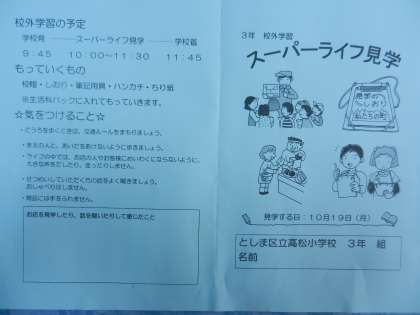 校外学習の予定
学校発 ――― スーパーライフ見学 ――― 学校着
9:45 10:00～11:30 11:45
もっていくもの
校帽・しおり・筆記用具・ハンカチ・ちり紙
※生活科バックに入れてもっていきます。
☆気をつけること☆
・どうろを歩くときは、交通ルールをまもりましょう。
・まえの人と、あいだをあけないように歩きましょう。
・ライフの中では、お店の人やお客様にめいわくにならないように、
大きな声をだしたり、走ったりしません。
・せつめいしていただく方の話をよく聞きましょう。
おしゃべりはしません。
・商品には手をふれません。
お店を見学したり、話を聞いたりして感じたこと
3年 校外学習
スーパーライフ見学
見学の
しおり
私たちの町
見学する日：10月19日（月）
としま区立高松小学校 3年 組
名前